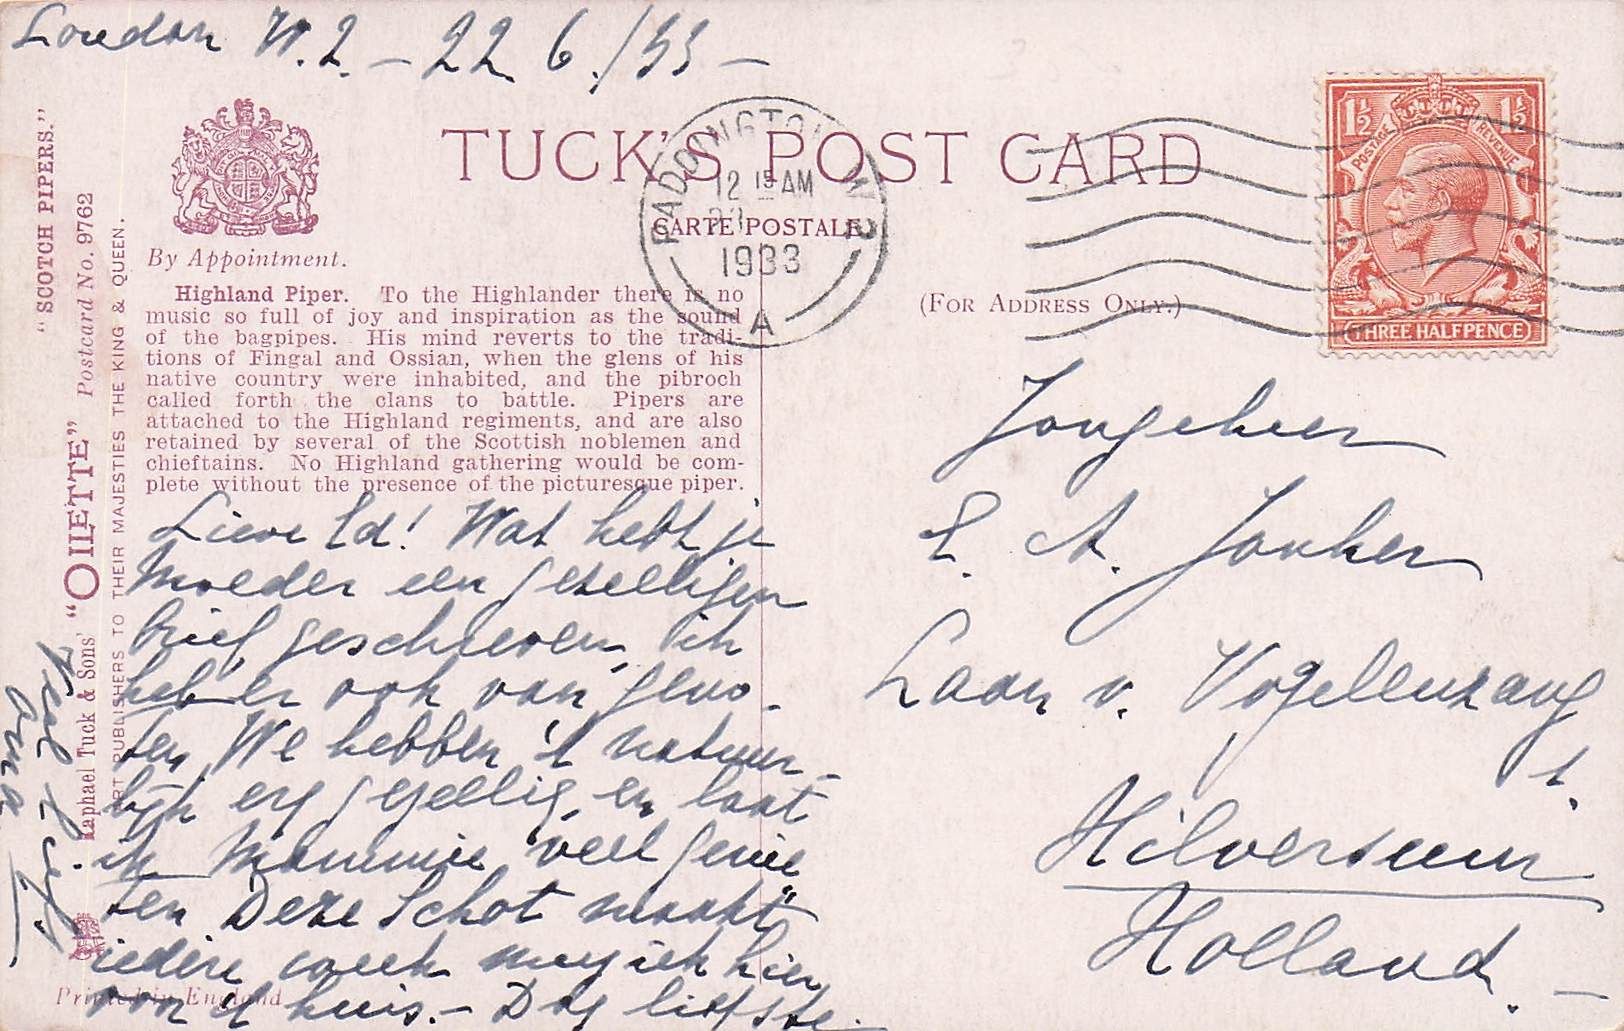 London W.2. – 22. 6./33 –
"SCOTCH PIPERS."
Raphael Tuck & Sons' "OILETTE" Postcard No. 9762
ART PUBLISHERS TO THEIR MAJESTIES THE KING & QUEEN.
By Appointment.
TUCK'S POST CARD
CARTE POSTALE
PADDINGTON W.2
12 15 AM
1933
A
POSTAGE REVENUE
1½ 1½
THREE HALFPENCE
(FOR ADDRESS ONLY.)
Highland Piper. To the Highlander there is no
music so full of joy and inspiration as the sound
of the bagpipes. His mind reverts to the tradi-
tions of Fingal and Ossian, when the glens of his
native country were inhabited, and the pibroch
called forth the clans to battle. Pipers are
attached to the Highland regiments, and are also
retained by several of the Scottish noblemen and
chieftains. No Highland gathering would be com-
plete without the presence of the picturesque piper.
Lieve Ed! Wat hebt je
Moeder een gezelligen
brief geschreven, ik
heb er ook van geno-
ten We hebben 't natuur-
lijk erg gezellig, en laat
ik Mammie veel genie
ten Deze Schot maakt
iedere week muziek hier
voor 't huis. – Dag liefste
Printed in England
Jongeheer
E. A. Jonker
Laan v. Vogelenzang
1.
Hilversum
Holland. –